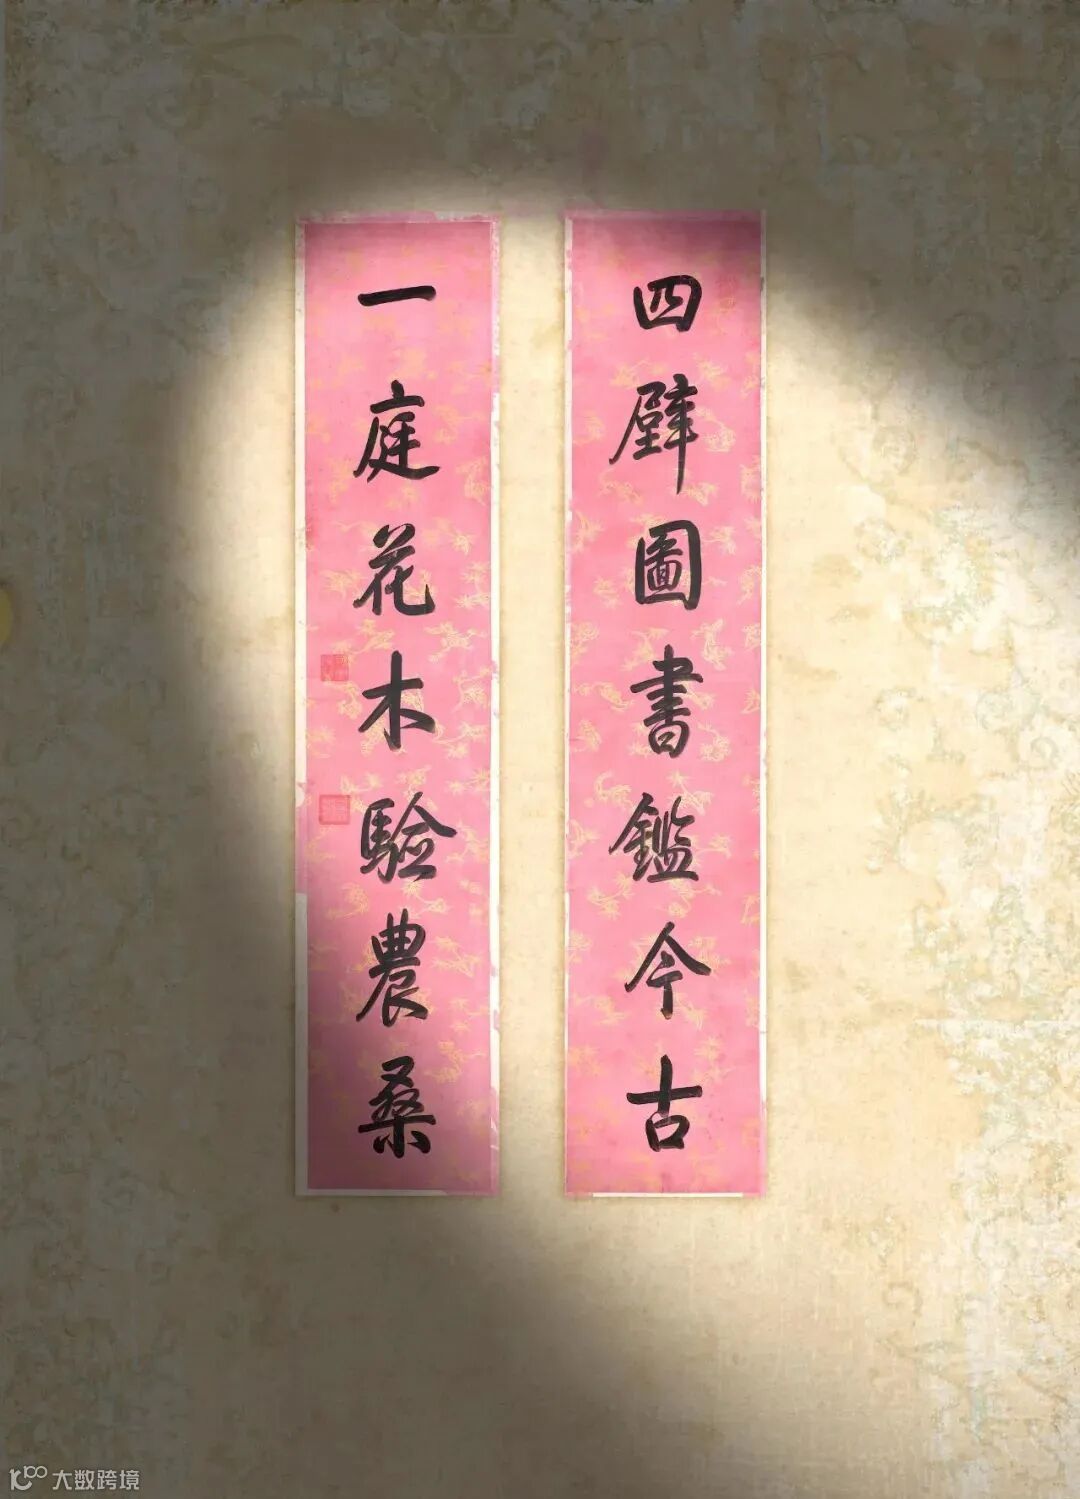 四壁圖書鑑今古
一庭花木驗農桑
大数跨境